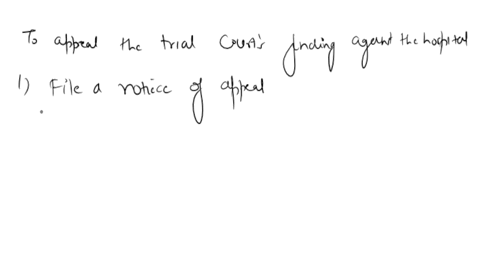 To appeal the trial Court's finding against the hospital
1) File a notice of appeal